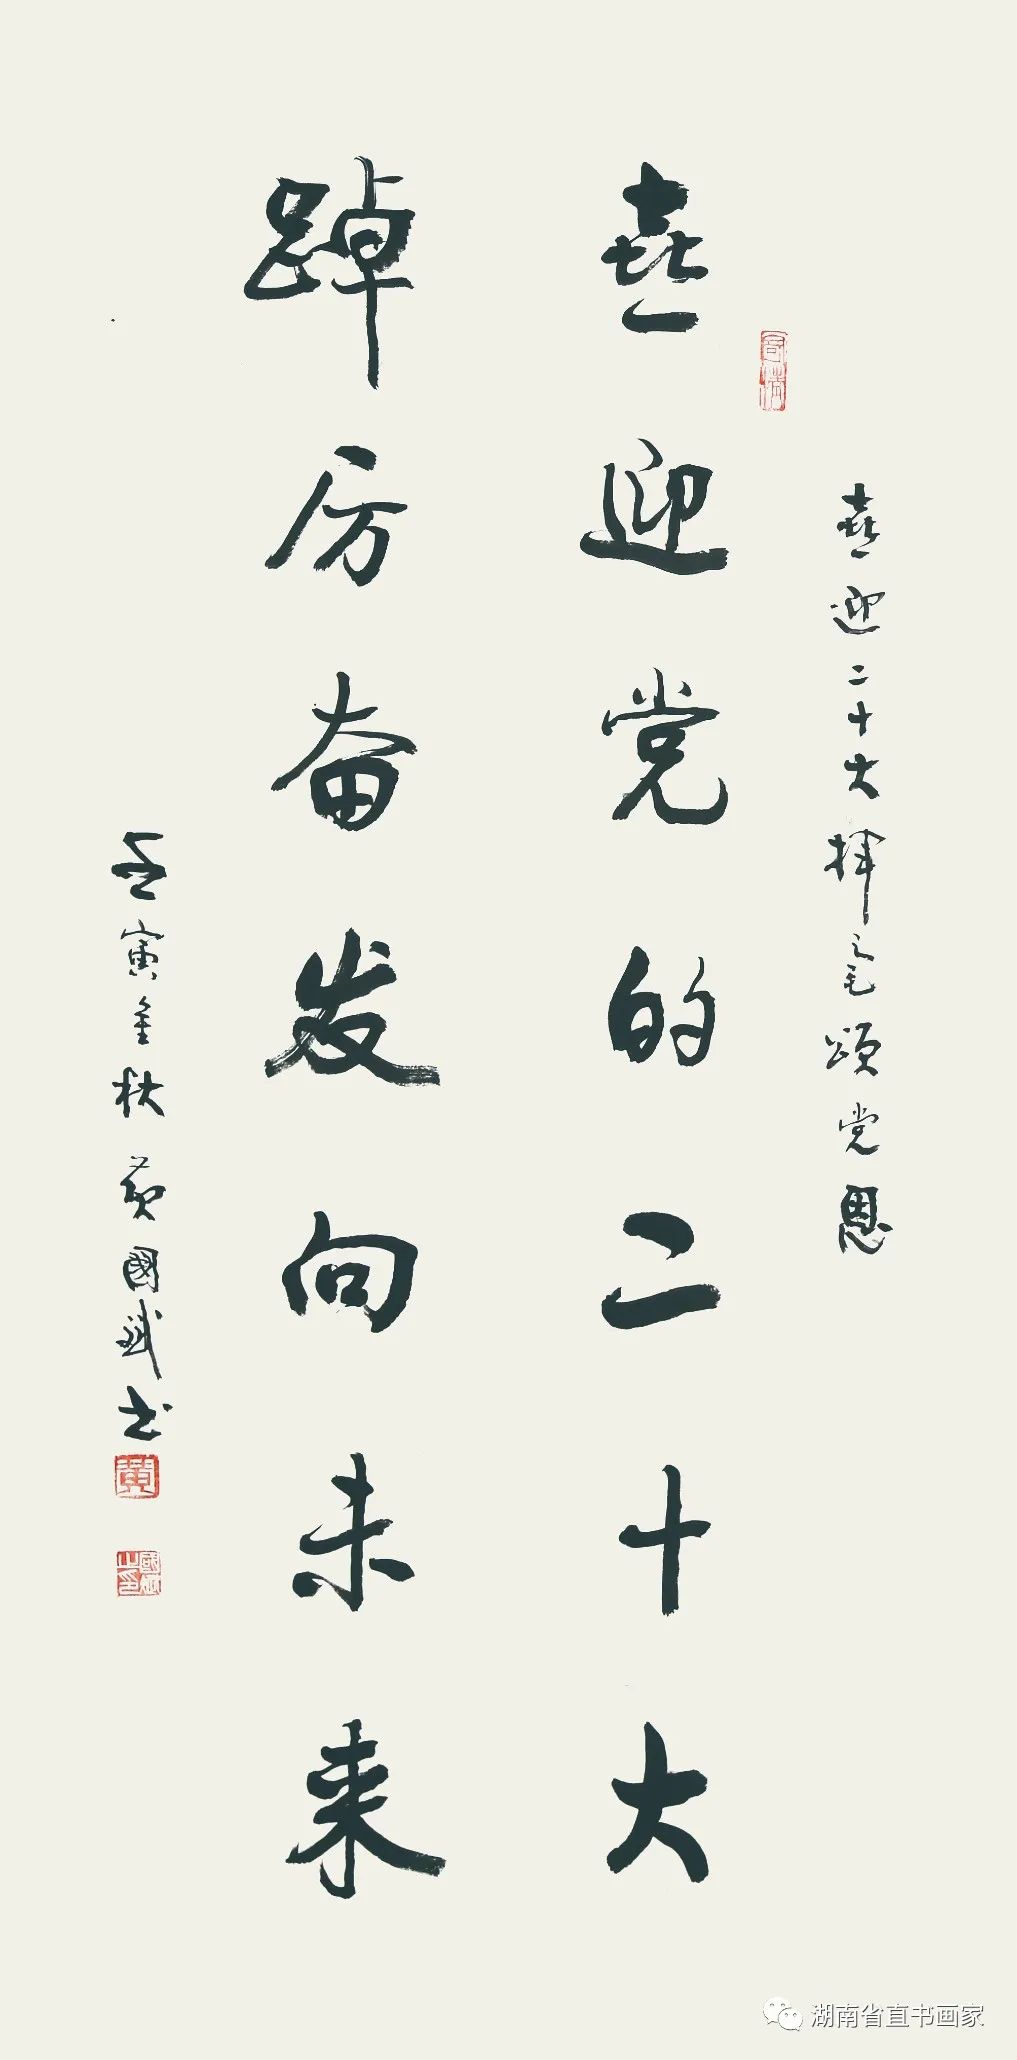 喜迎二十大挥毫颂党恩
喜迎党的二十大
踔厉奋发向未来
壬寅金秋黄國斌书
黄
國斌之印
湖南省直书画家